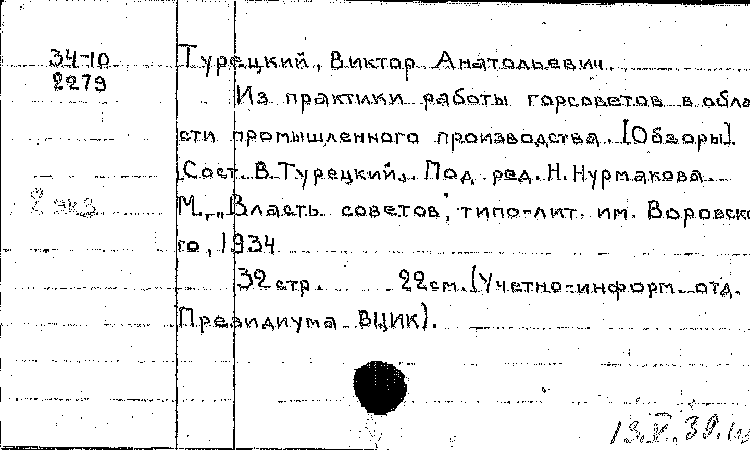 34-10
2279
2 экз
Турецкий, Виктор Анатольевич.
Из практики работы горсоветов в обла
сти промышленного производства. [Обзоры].
[Сост. В. Турецкий, Под ред. Н. Нурмакова.
М., „Власть советов", типо-лит. им. Воровско
го, 1934
32 стр. 22 см. (Учетно-информ. отд.
Президиума ВЦИК).